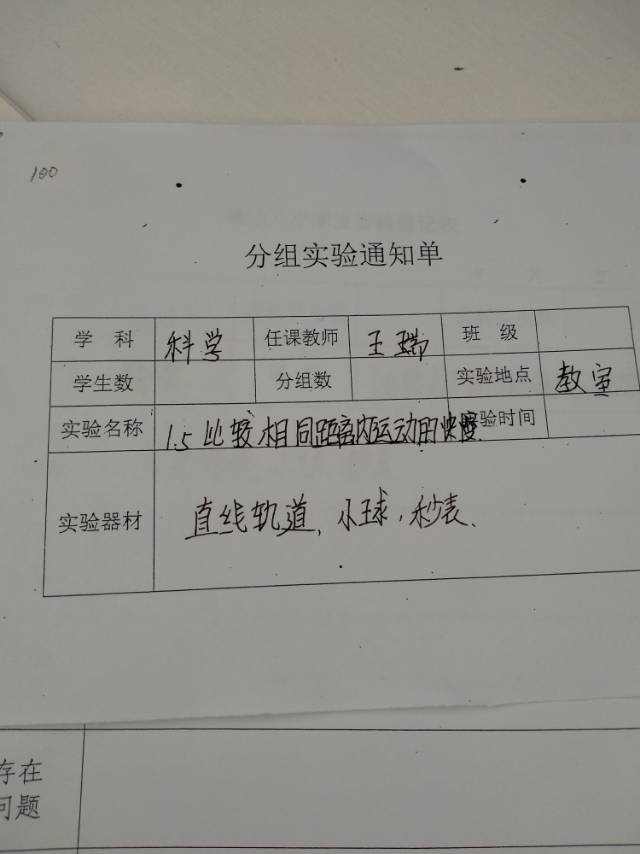 100
分组实验通知单
学 科 科学 任课教师 王瑞 班 级
学生数 分组数 实验地点 教室
实验名称 1.5 比较相同距离内运动的快慢 验时间
实验器材 直线轨道、小球,秒表、
存在
问题